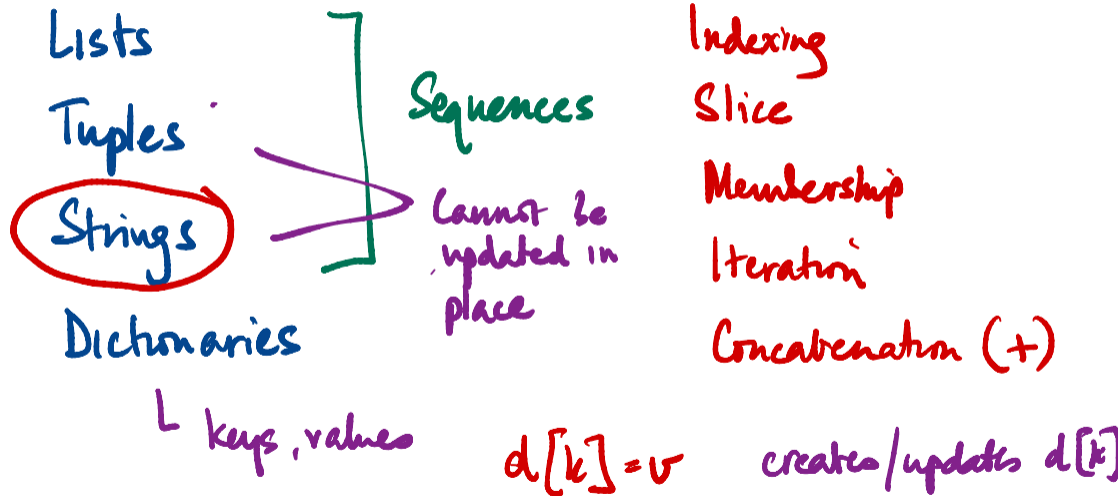 Lists
Tuples
Strings
Dictionaries
keys, values
Sequences
Cannot be
updated in
place
Indexing
Slice
Membership
Iteration
Concatenation (+)
d[k] = v
creates/updates d[k]